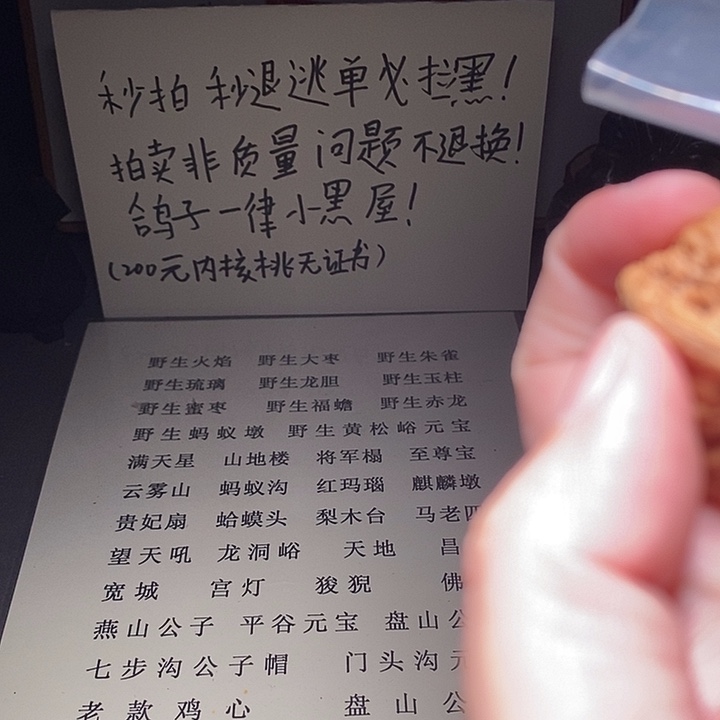 秒拍 秒退逃单必拉黑!
拍卖非质量问题不退换!
鸽子一律小黑屋!
(200元内核桃无证书)
野生火焰 野生大枣 野生朱雀
野生琉璃 野生龙胆 野生玉柱
野生蜜枣 野生福蟾 野生赤龙
野生蚂蚁墩 野生黄松峪元宝
满天星 山地楼 将军榻 至尊宝
云雾山 蚂蚁沟 红玛瑙 麒麟墩
贵妃扇 蛤蟆头 梨木台 马老四
望天吼 龙洞峪 天地 昌
宽城 宫灯 狻猊 佛
燕山公子 平谷元宝 盘山公
七步沟公子帽 门头沟元
老款鸡心 盘山公